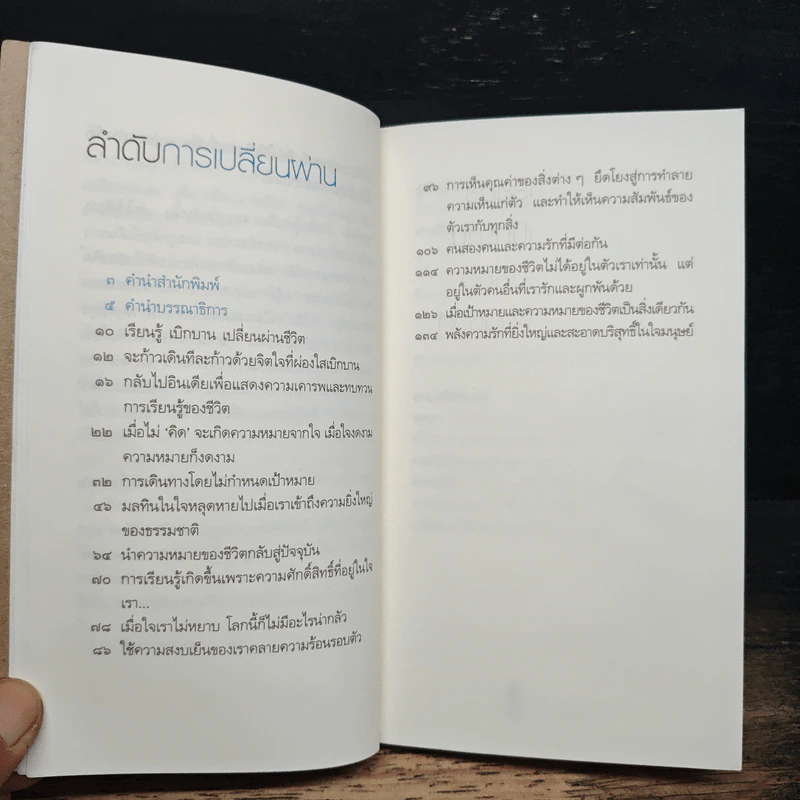 ลำดับการเปลี่ยนผ่าน
๓ คำนำสำนักพิมพ์
๕ คำนำบรรณาธิการ
๑๐ เรียนรู้ เบิกบาน เปลี่ยนผ่านชีวิต
๑๒ จะก้าวเดินทีละก้าวด้วยจิตใจที่ผ่องใสเบิกบาน
๑๖ กลับไปอินเดียเพื่อแสดงความเคารพและทบทวน
การเรียนรู้ของชีวิต
๒๒ เมื่อไม่ ‘คิด’ จะเกิดความหมายจากใจ เมื่อใจงดงาม
ความหมายก็งดงาม
๓๒ การเดินทางโดยไม่กำหนดเป้าหมาย
๔๖ มลทินในใจหลุดหายไปเมื่อเราเข้าถึงความยิ่งใหญ่
ของธรรมชาติ
๖๔ นำความหมายของชีวิตกลับสู่ปัจจุบัน
๗๐ การเรียนรู้เกิดขึ้นเพราะความศักดิ์สิทธิ์ที่อยู่ในใจ
เรา...
๗๘ เมื่อใจเราไม่หยาบ โลกนี้ก็ไม่มีอะไรน่ากลัว
๘๖ ใช้ความสงบเย็นของเราคลายความร้อนรอบตัว
๙๖ การเห็นคุณค่าของสิ่งต่าง ๆ ยึดโยงสู่การทำลาย
ความเห็นแก่ตัว และทำให้เห็นความสัมพันธ์ของ
ตัวเรากับทุกสิ่ง
๑๐๖ คนสองคนและความรักที่มีต่อกัน
๑๑๔ ความหมายของชีวิตไม่ได้อยู่ในตัวเราเท่านั้น แต่
อยู่ในตัวคนอื่นที่เรารักและผูกพันด้วย
๑๒๖ เมื่อเป้าหมายและความหมายของชีวิตเป็นสิ่งเดียวกัน
๑๓๔ พลังความรักที่ยิ่งใหญ่และสะอาดบริสุทธิ์ในใจมนุษย์